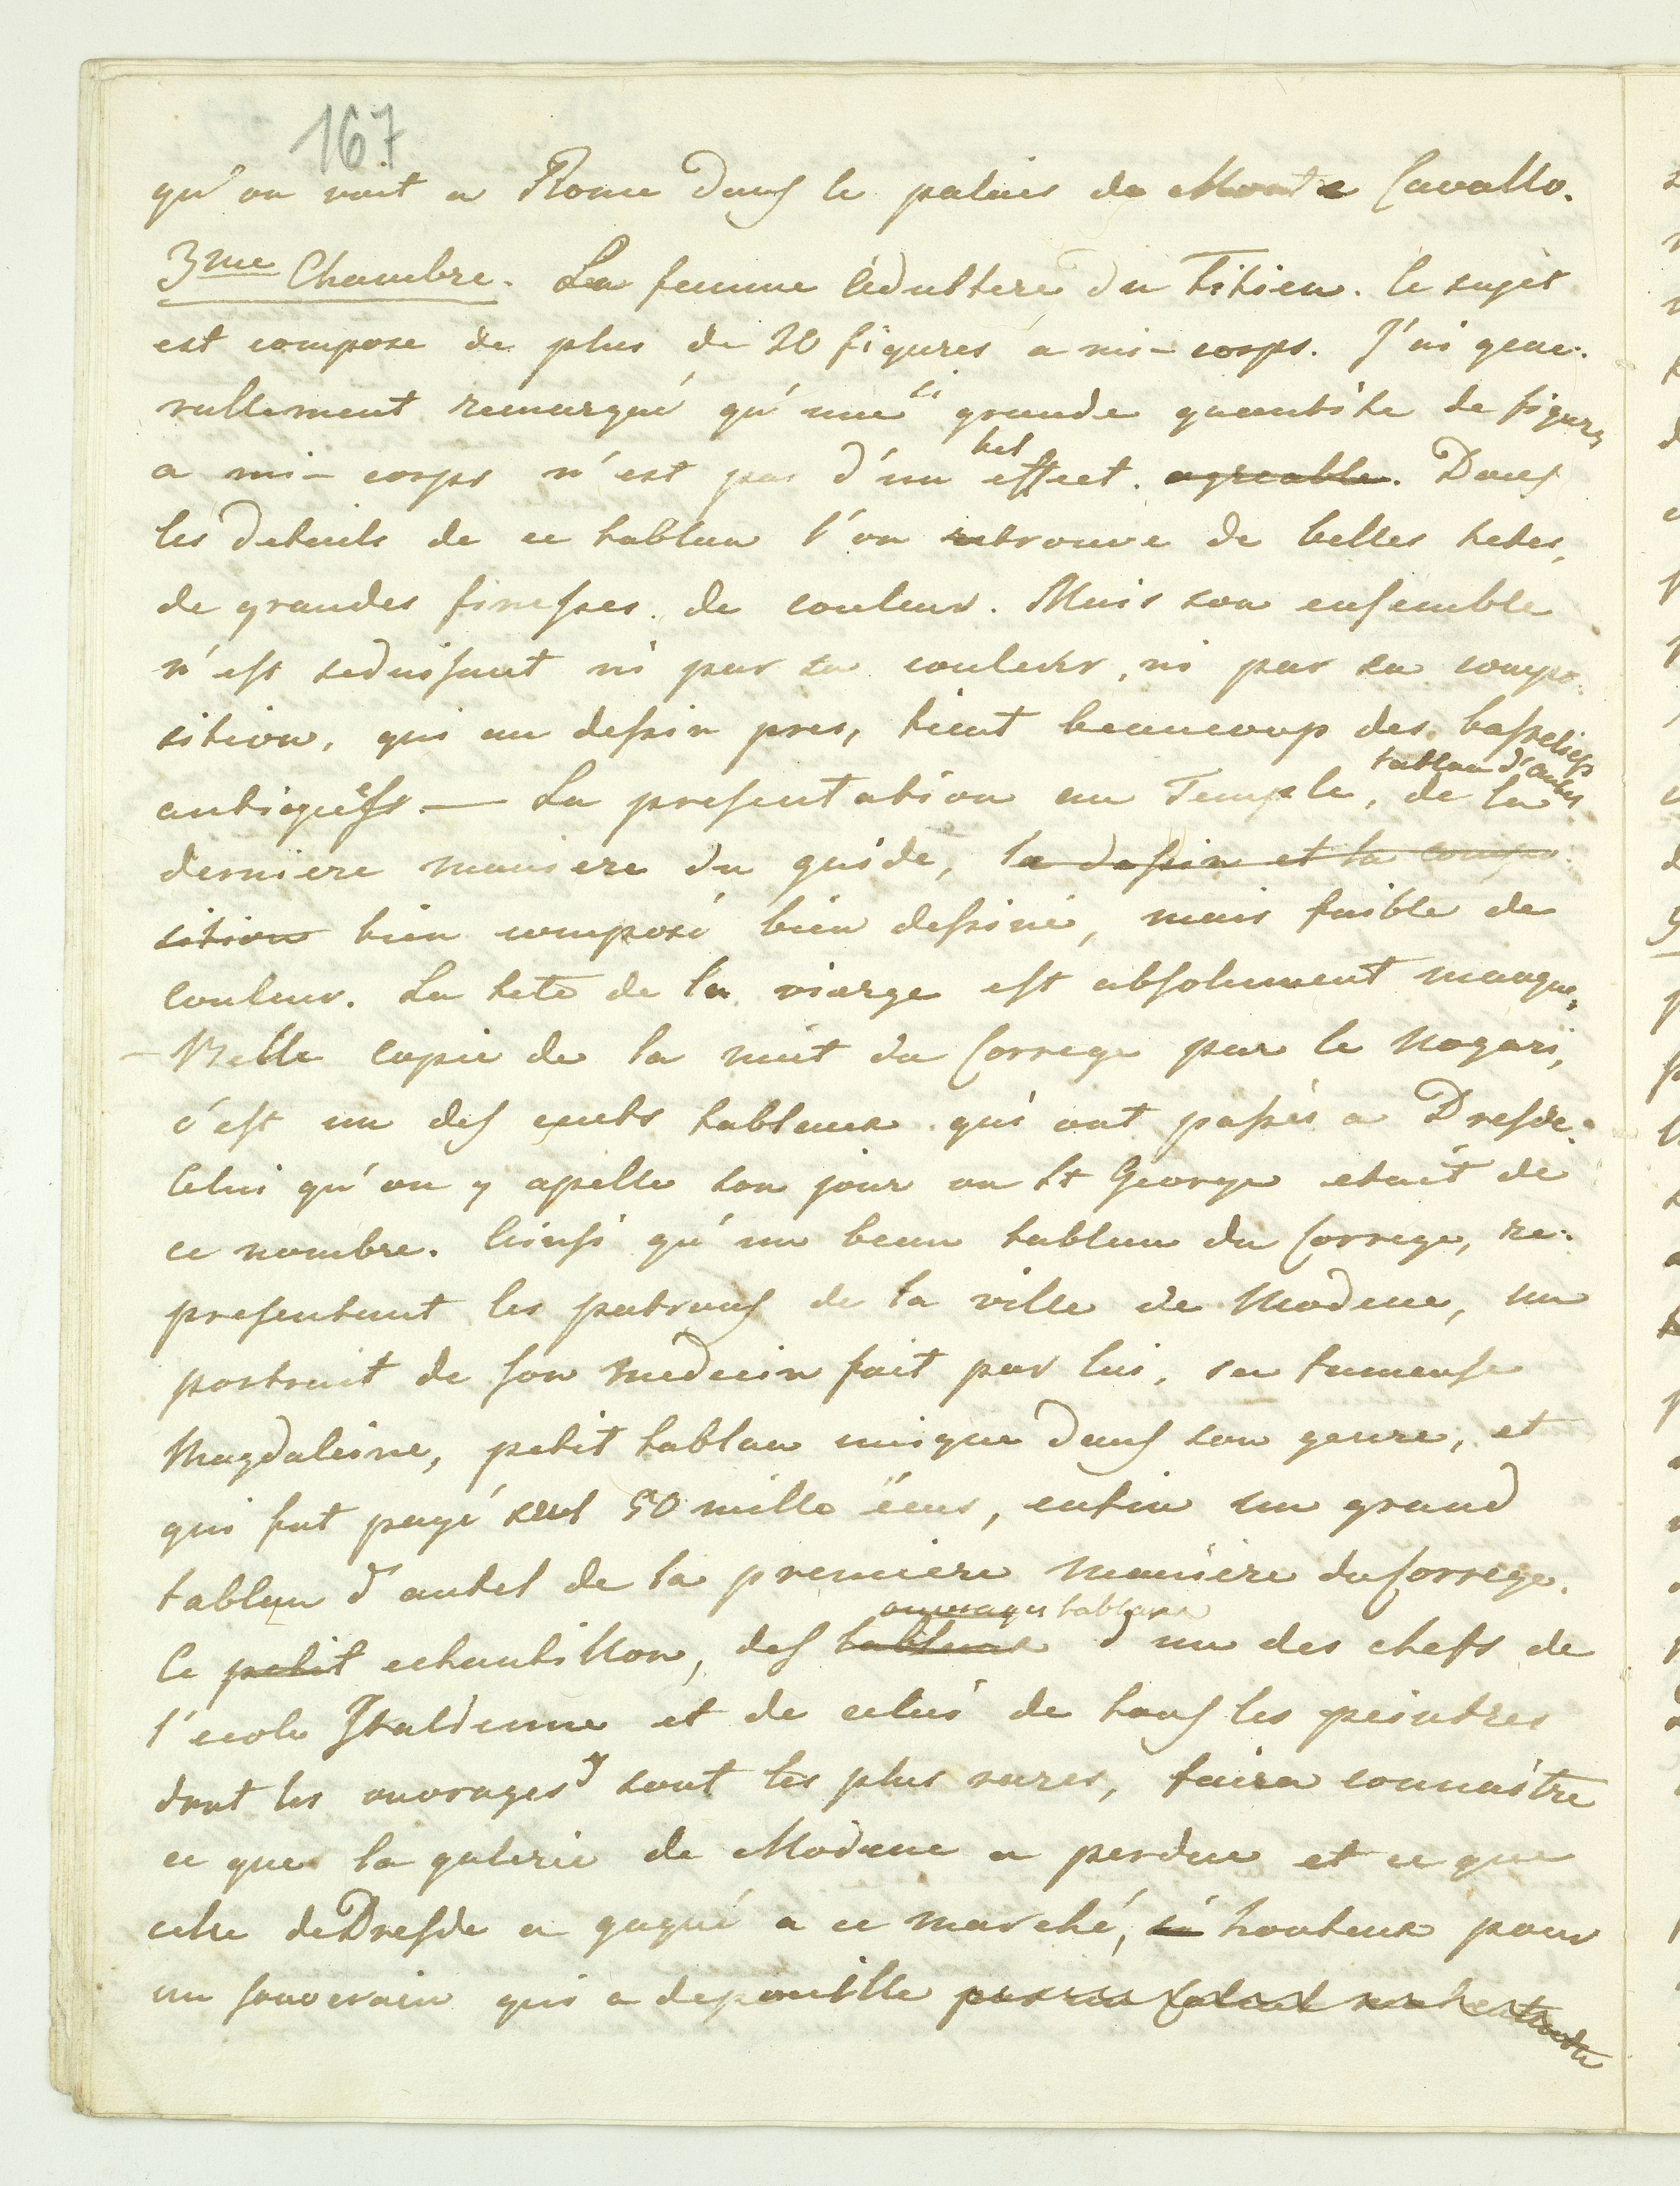 167
qu'on voit a Rome dans le palais de Monte Cavallo.
3me Chambre. La femme adultere du Titien. le sujet
est compose de plus de 20 figures a mi-corps. J'ai gene-
rallement remarqué qu'une si grande quantite de figures
a mi-corps n'est pas d'un bel effect. agreable. Dans
les details de ce tableau l'on retrouve de belles tetes,
de grandes finesses de couleur. Mais son ensemble
n'est seduisant ni par sa couleur, ni par sa compo-
sition, qui au dessin pres, tient beaucoup des basreliefs
antiques — La presentation au Temple, tableau d'autel de la
derniere maniere du guide, le dessin et la compo-
sition bien composé bien dessiné, mais faible de
couleur. La tete de la vierge est absolument manque,
- Belle copie de la nuit du Correge par le Nogari,
c'est un des cents tableaux qui ont passés a Dresde.
Celui qu'on y apelle son jour ou St George etait de
ce nombre. Ainsi qu'un beau tableau du Correge, re-
presentant les patrons de la ville de Modene, un
portrait de son medecin fait par lui, sa fameuse
Magdaleine, petit tableau unique dans son genre, et
qui fut payé seul 50 mille écus, enfin un grand
tableau d'autel de la premiere maniere du Correge.
Ce petit echantillon, des tableaux ouvrages tableaux d'un des chefs de
l'ecole Italienne et de celui de tous les peintres
dont les ouvrages sont les plus rares, faira connaitre
ce que la galerie de Modene a perdue et ce que
celle de Dresde a gagné a ce marché, si honteux pour
un souverain qui a depouillé